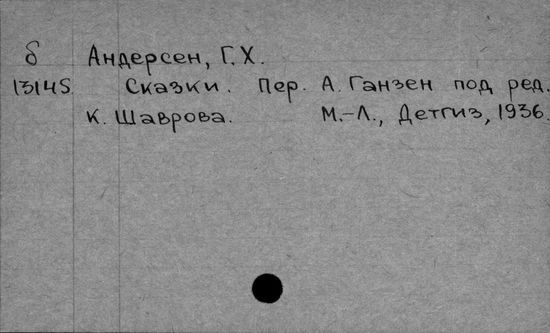 б Андерсен, Г.Х.
13145 Сказки. Пер. А. Ганзен под ред.
К. Шаврова. М.-Л., Детгиз, 1936.